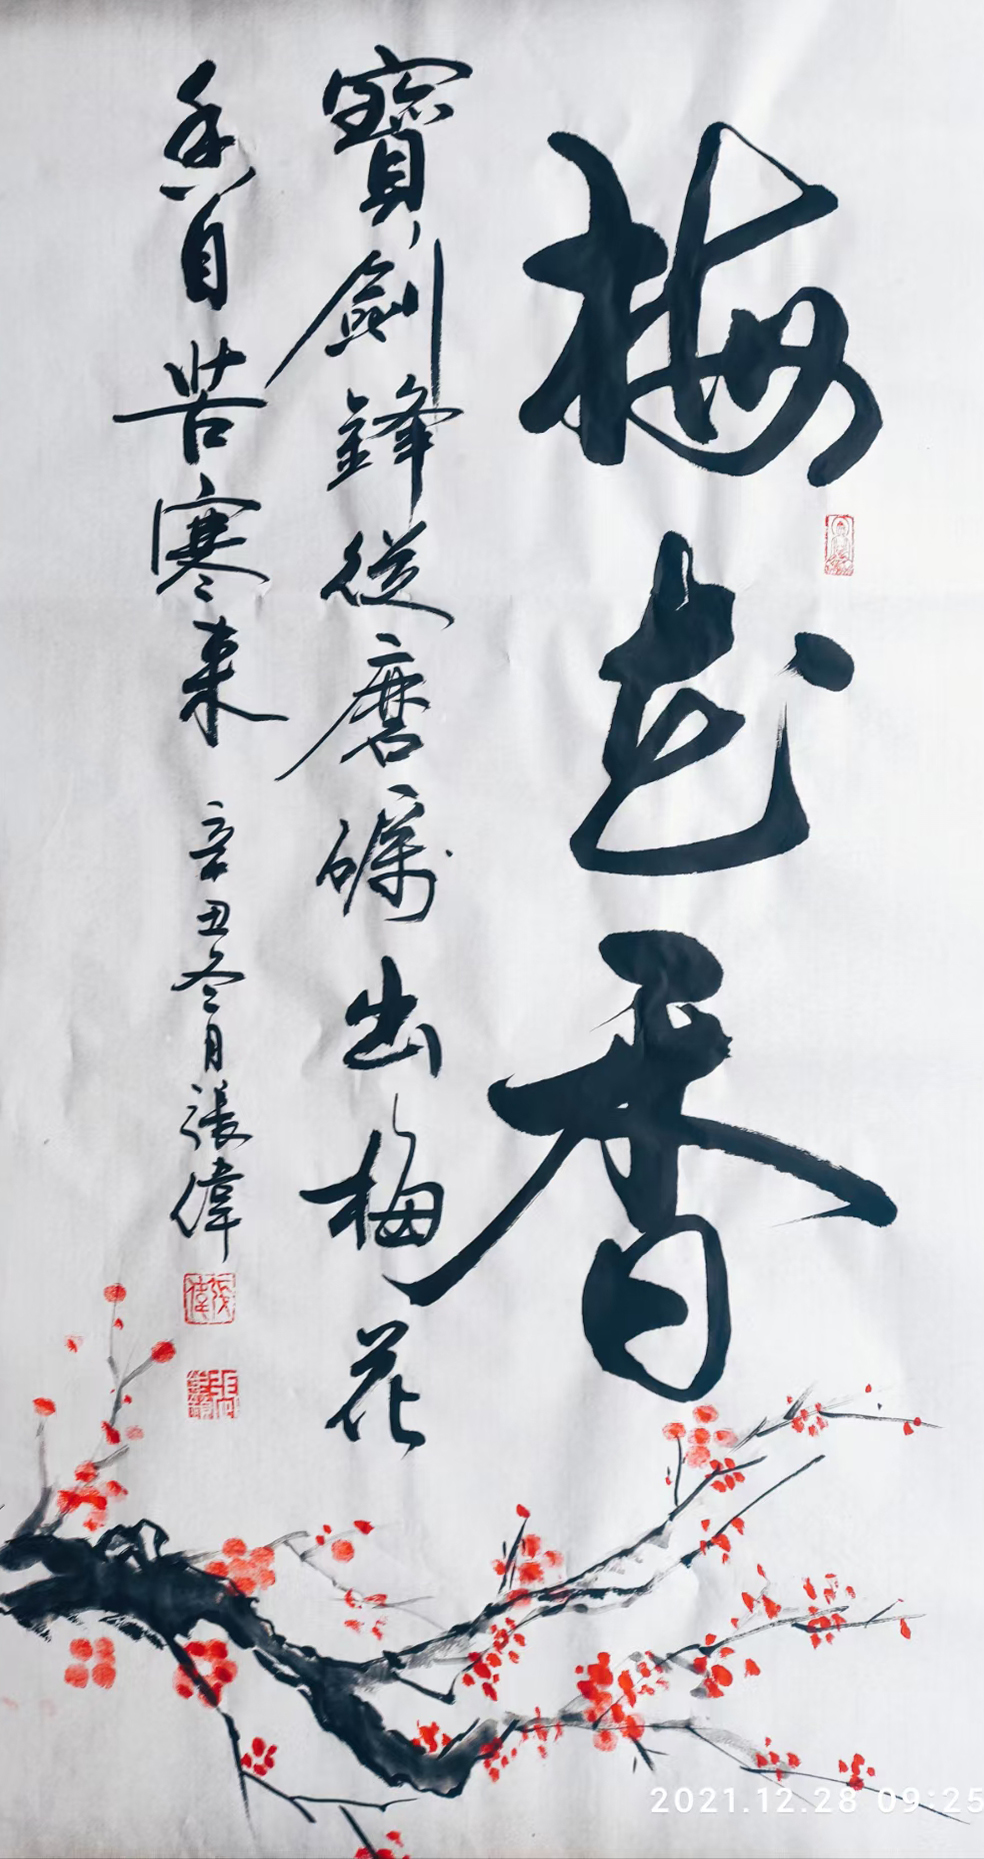 梅花香
寶劍鋒從磨礪出梅花
香自苦寒來
辛丑冬月張偉
張偉
2021.12.28 09:25